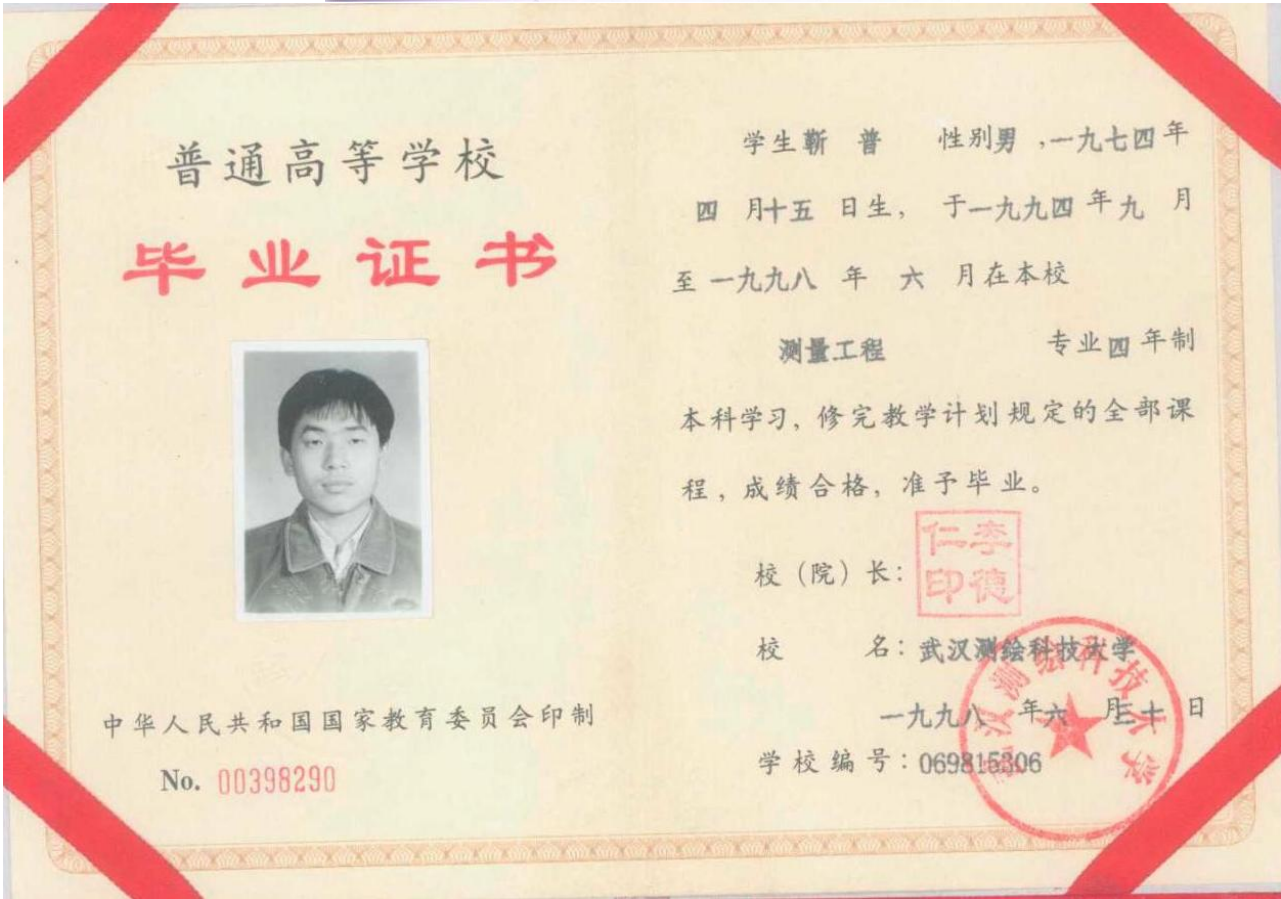 普通高等学校
毕业证书
中华人民共和国国家教育委员会印制
No. 00398290
学生靳 普 性别男,一九七四年
四 月十五 日生, 于一九九四年九 月
至一九九八 年 六 月在本校
测量工程 专业四年制
本科学习, 修完教学计划规定的全部课
程, 成绩合格, 准予毕业。
校(院)长:
仁李
印德
校 名: 武汉测绘科技大学
一九九八 年六 月三十 日
学校编号: 069815306
武汉测绘科技大学